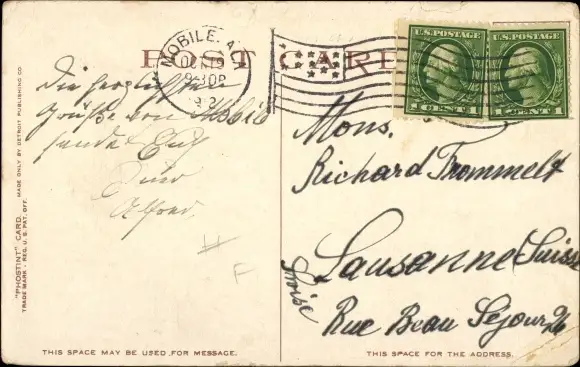 POST CARD
MOBILE, ALA.
OCT 19
9-30P
U.S. POSTAGE
1 CENT 1
U.S. POSTAGE
1 CENT 1
Die herzlichsten
Grüße von Mobile
sendet Euch
Euer
Alfred.
H
F
Mons.
Richard Trommelt
Lausanne Suisse
Suisse
Rue Beau Séjour 26
"PHOSTINT" CARD MADE ONLY BY DETROIT PUBLISHING CO
TRADE MARK - REG. U. S. PAT. OFF.
THIS SPACE MAY BE USED FOR MESSAGE.
THIS SPACE FOR THE ADDRESS.